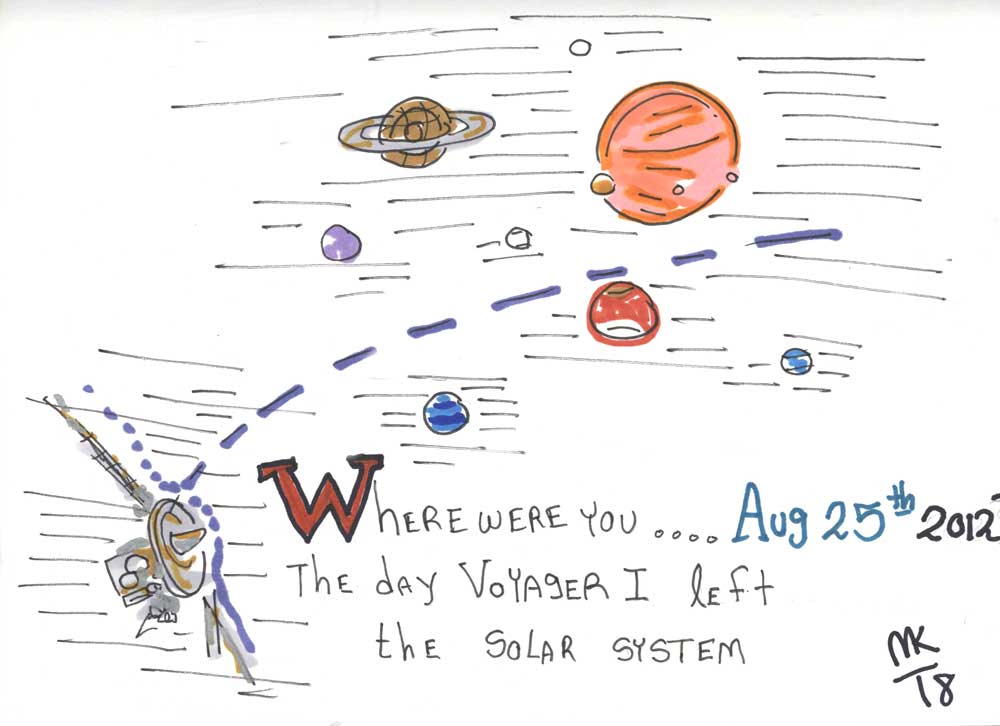 Where were you .... Aug 25th 2012
The day Voyager I left
the solar system
MK
18